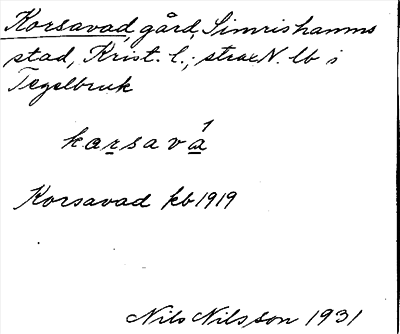 Korsavad, gård, Simrishamns
stad, Krist. l.; strax N. lb i
Tegelbruk
karsavá
Korsavad kb 1919
Nils Nilsson 1931